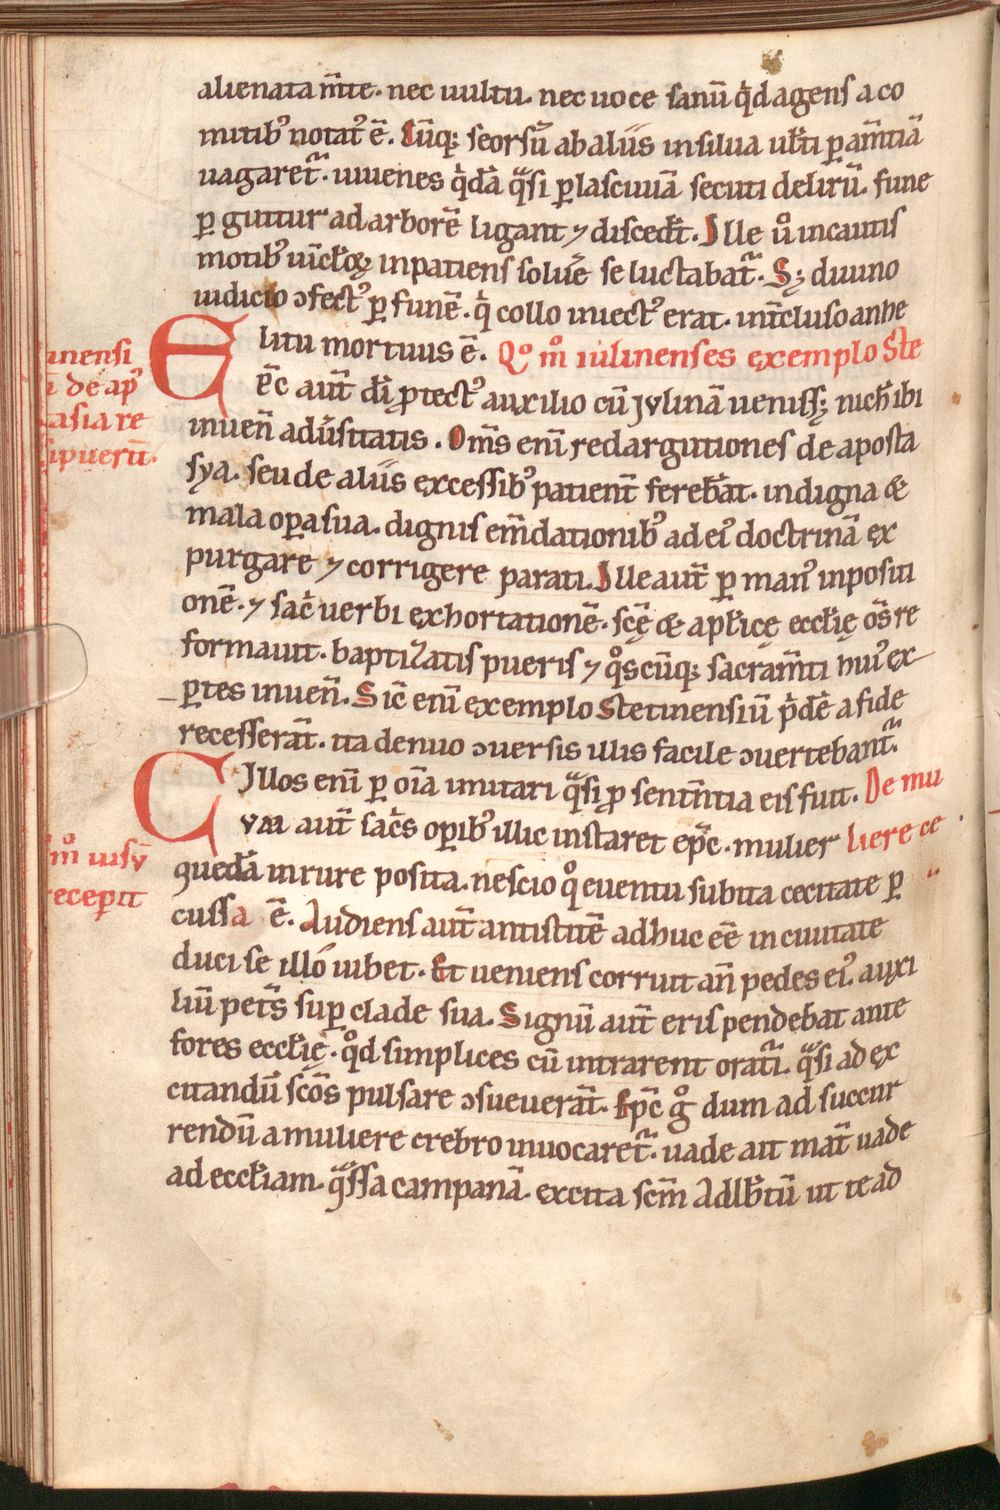 alienata m̅te. nec uultu. nec uoce sanu̅ q̍d agens a co
mitib᷒ notat᷒ e̅. Cu̅q; seorsu̅ ab aliis in silua ubi p am̅tia̅
uagaret᷑. iuuenes q̍da̅ q̃si p lasciuia̅ secuti deliru̅. fune
p guttur ad arbore̅ ligant ⁊ disced̅t. Ille ů incautis
motib᷒ ui̅cl̅oꝝ inpatiens solue̅ se luctabat᷑. S; diuino
iudicio ↄfect᷒ p fune̅. q̍ collo inuect᷒ erat. int̅cluso anhe
litu mortuus e̅. Qo m̊ iulinenses exemplo Ste
inensi
i̅ de ap᷒
asia re
sipueru̅.
Ec̅ aut̅ di̅ ꝓtect᷒ auxilio cu̅ Jvlina̅ ueniss; nich̅ ibi
inuen̅ adu̅sitatis. Om̅s eni̅ redargutiones de aposta
sya. seu de aliis excessib᷒ patient̅ fereba̅t. indigna &
mala opa sua. dignis em̅dationib᷒ ad ei᷒ doctrina̅ ex
purgare ⁊ corrigere parati. Ille aut̅ p man᷒ inpositi
one̅. ⁊ sac̍ uerbi exhortatione̅. sc̅ę & apl̅icę eccl̅ię os̅ re
formauit. baptizatis pueris ⁊ q̊scu̅q; sacram̅ti hui᷒ ex
ptes inuen̅. Sic̅ eni̅ exemplo Stetinensiu̅ p̍de̅ a fide
recessera̅t. ita denuo ↄuersis illis facile ↄuertebant᷑.
Illos eni̅ p oi̅a imitari q̃si ꝓ sentn̅tia eis fuit. De mu
liere ce
m̊ uisu̅
recepit
Cvm aut̅ sac̍s opib᷒ illic instaret ep̅c. mulier
queda̅ in rure posita. nescio q̊ euentu subita cecitate p
cussa e̅. Audiens aut̅ antistite̅ adhuc ee̅ in ciuitate
duci se illo iubet. Et ueniens corruit an̅ pedes ei᷒. auxi
liu̅ pete̅s sup clade sua. Signu̅ aut̅ eris pendebat ante
fores eccl̅ię. q̊d simplices cu̅ intrarent orati᷑. q̃si ad ex
citandu̅ sco̅s pulsare ↄsueuera̅t. Ep̅c g̊ dum ad succur
rendu̅ a muliere crebro inuocaret᷑. uade ait mat̅ uade
ad eccl̅iam. q̃ssa campana̅. excita sc̅m Adlb̅tu̅ ut te ad